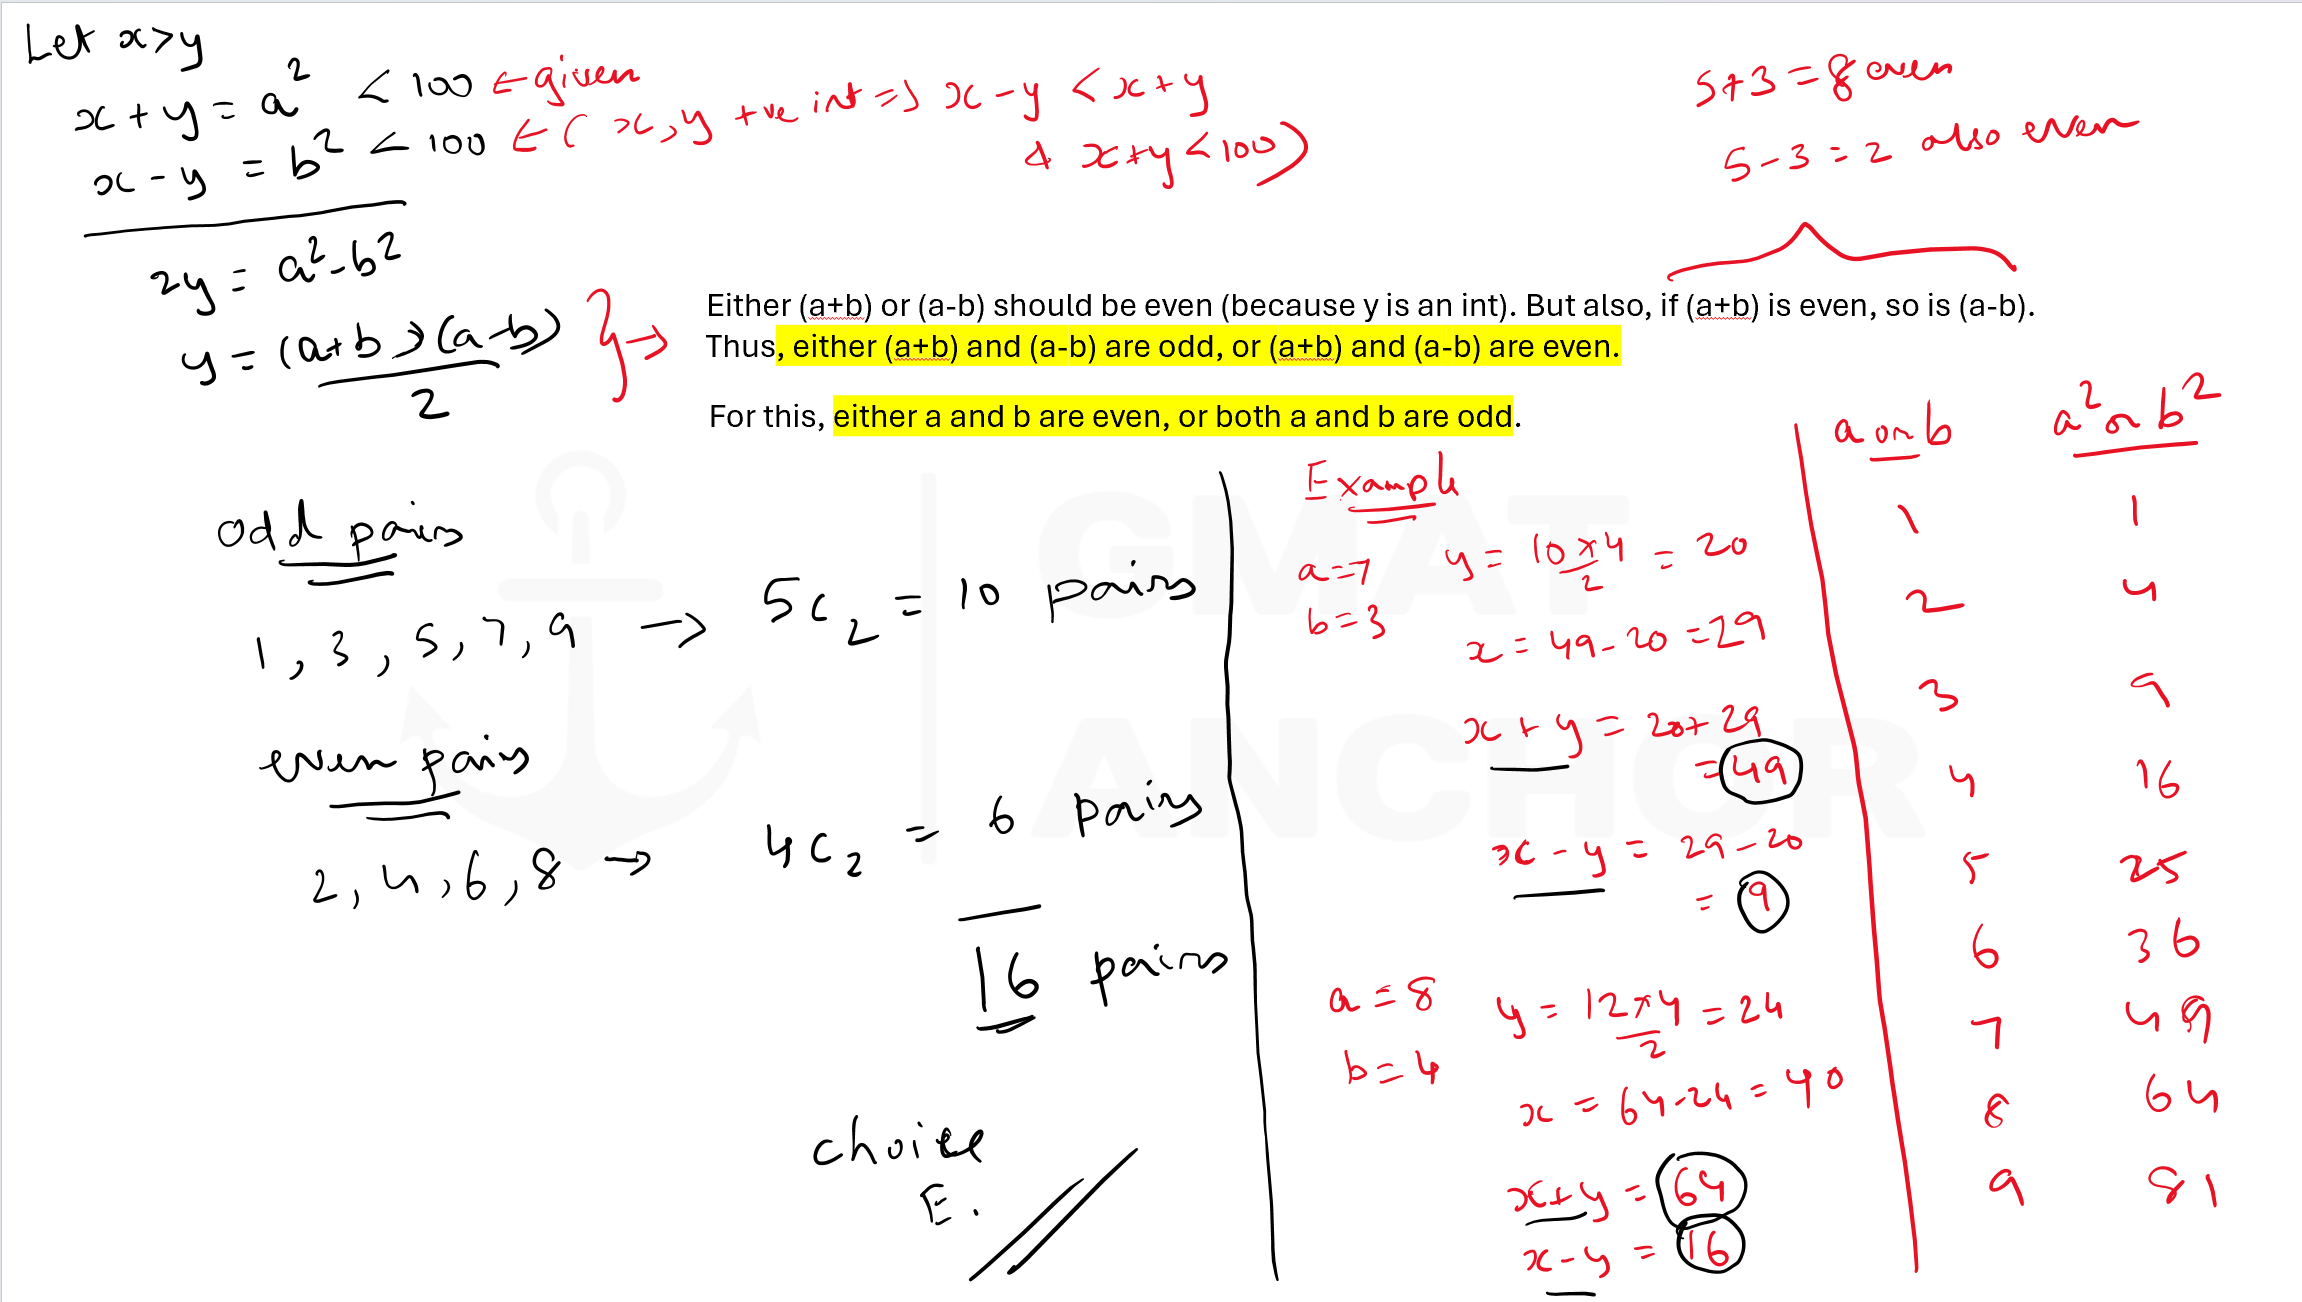 Let x>y
x + y = a² < 100 ← given
x - y = b² < 100 ← ( x, y +ve int => x - y < x + y
& x+y < 100)
2y = a² - b²
y = (a+b)(a-b) / 2
5+3 = 8 even
5-3 = 2 also even
Either (a+b) or (a-b) should be even (because y is an int). But also, if (a+b) is even, so is (a-b).
Thus, either (a+b) and (a-b) are odd, or (a+b) and (a-b) are even.
For this, either a and b are even, or both a and b are odd.
odd pairs
1, 3, 5, 7, 9 → 5C2 = 10 pairs
even pairs
2, 4, 6, 8 → 4C2 = 6 pairs
16 pairs
choice
E.
Example
a=7
b=3
y = 10×4 / 2 = 20
x = 49-20 = 29
x + y = 20+29
= 49
x - y = 29-20
= 9
a = 8
b = 4
y = 12×4 / 2 = 24
x = 64-24 = 40
x+y = 64
x-y = 16
a or b a² or b²
1 1
2 4
3 9
4 16
5 25
6 36
7 49
8 64
9 81
GMAT
ANCHOR